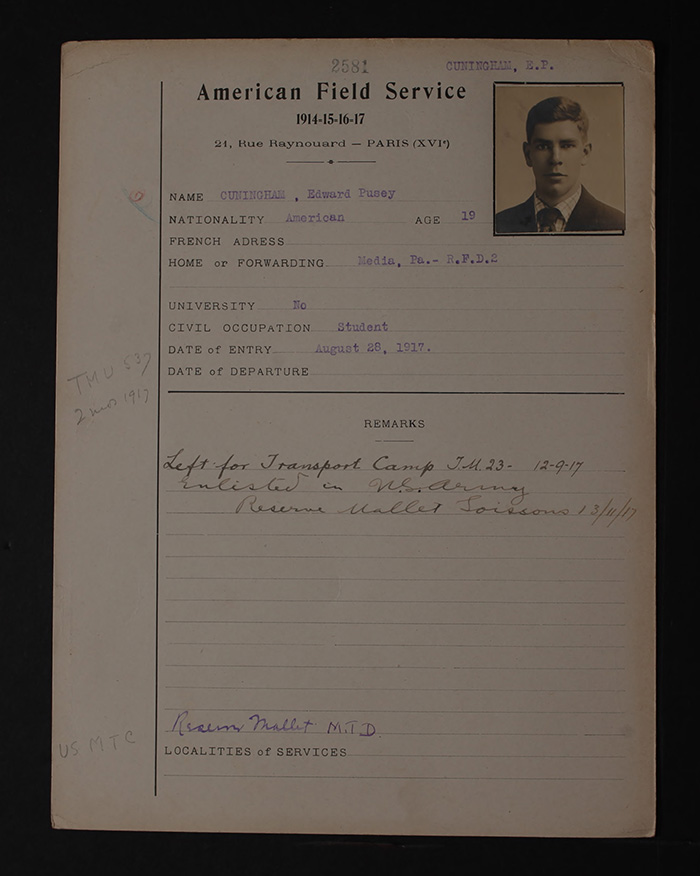 2581 CUNINGHAM, E.P.
American Field Service
1914-15-16-17
21, Rue Raynouard — PARIS (XVIe)
NAME CUNINGHAM , Edward Pusey
NATIONALITY American AGE 19
FRENCH ADRESS
HOME or FORWARDING Media, Pa.- R.F.D.2
UNIVERSITY No
CIVIL OCCUPATION Student
DATE of ENTRY August 28, 1917.
DATE of DEPARTURE
TMU 537
2 mos 1917
REMARKS
Left for Transport Camp T.M. 23- 12-9-17
Enlisted in U.S. Army
Reserve Mallet Soissons 13/11/17
Reserve Mallet M.T.D.
US MTC
LOCALITIES of SERVICES